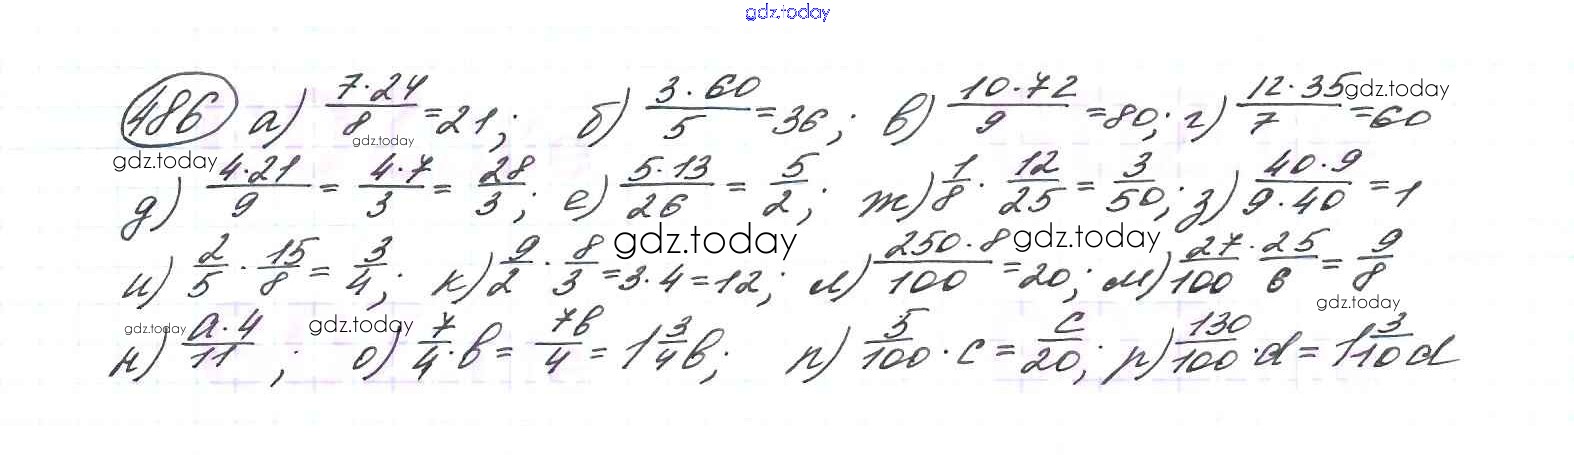 gdz.today
486 а) 7·24/8 = 21; б) 3·60/5 = 36; в) 10·72/9 = 80; г) 12·35/7 = 60 gdz.today
gdz.today gdz.today
д) 4·21/9 = 4·7/3 = 28/3; е) 5·13/26 = 5/2; ж) 1/8 · 12/25 = 3/50; з) 40·9/9·40 = 1
gdz.today gdz.today
и) 2/5 · 15/8 = 3/4; к) 9/2 · 8/3 = 3·4 = 12; л) 250·8/100 = 20; м) 27/100 · 25/6 = 9/8
gdz.today gdz.today gdz.today
н) a·4/11; о) 7/4 · b = 7b/4 = 1 3/4 b; п) 5/100 · c = c/20; р) 130/100 · d = 1 3/10 d